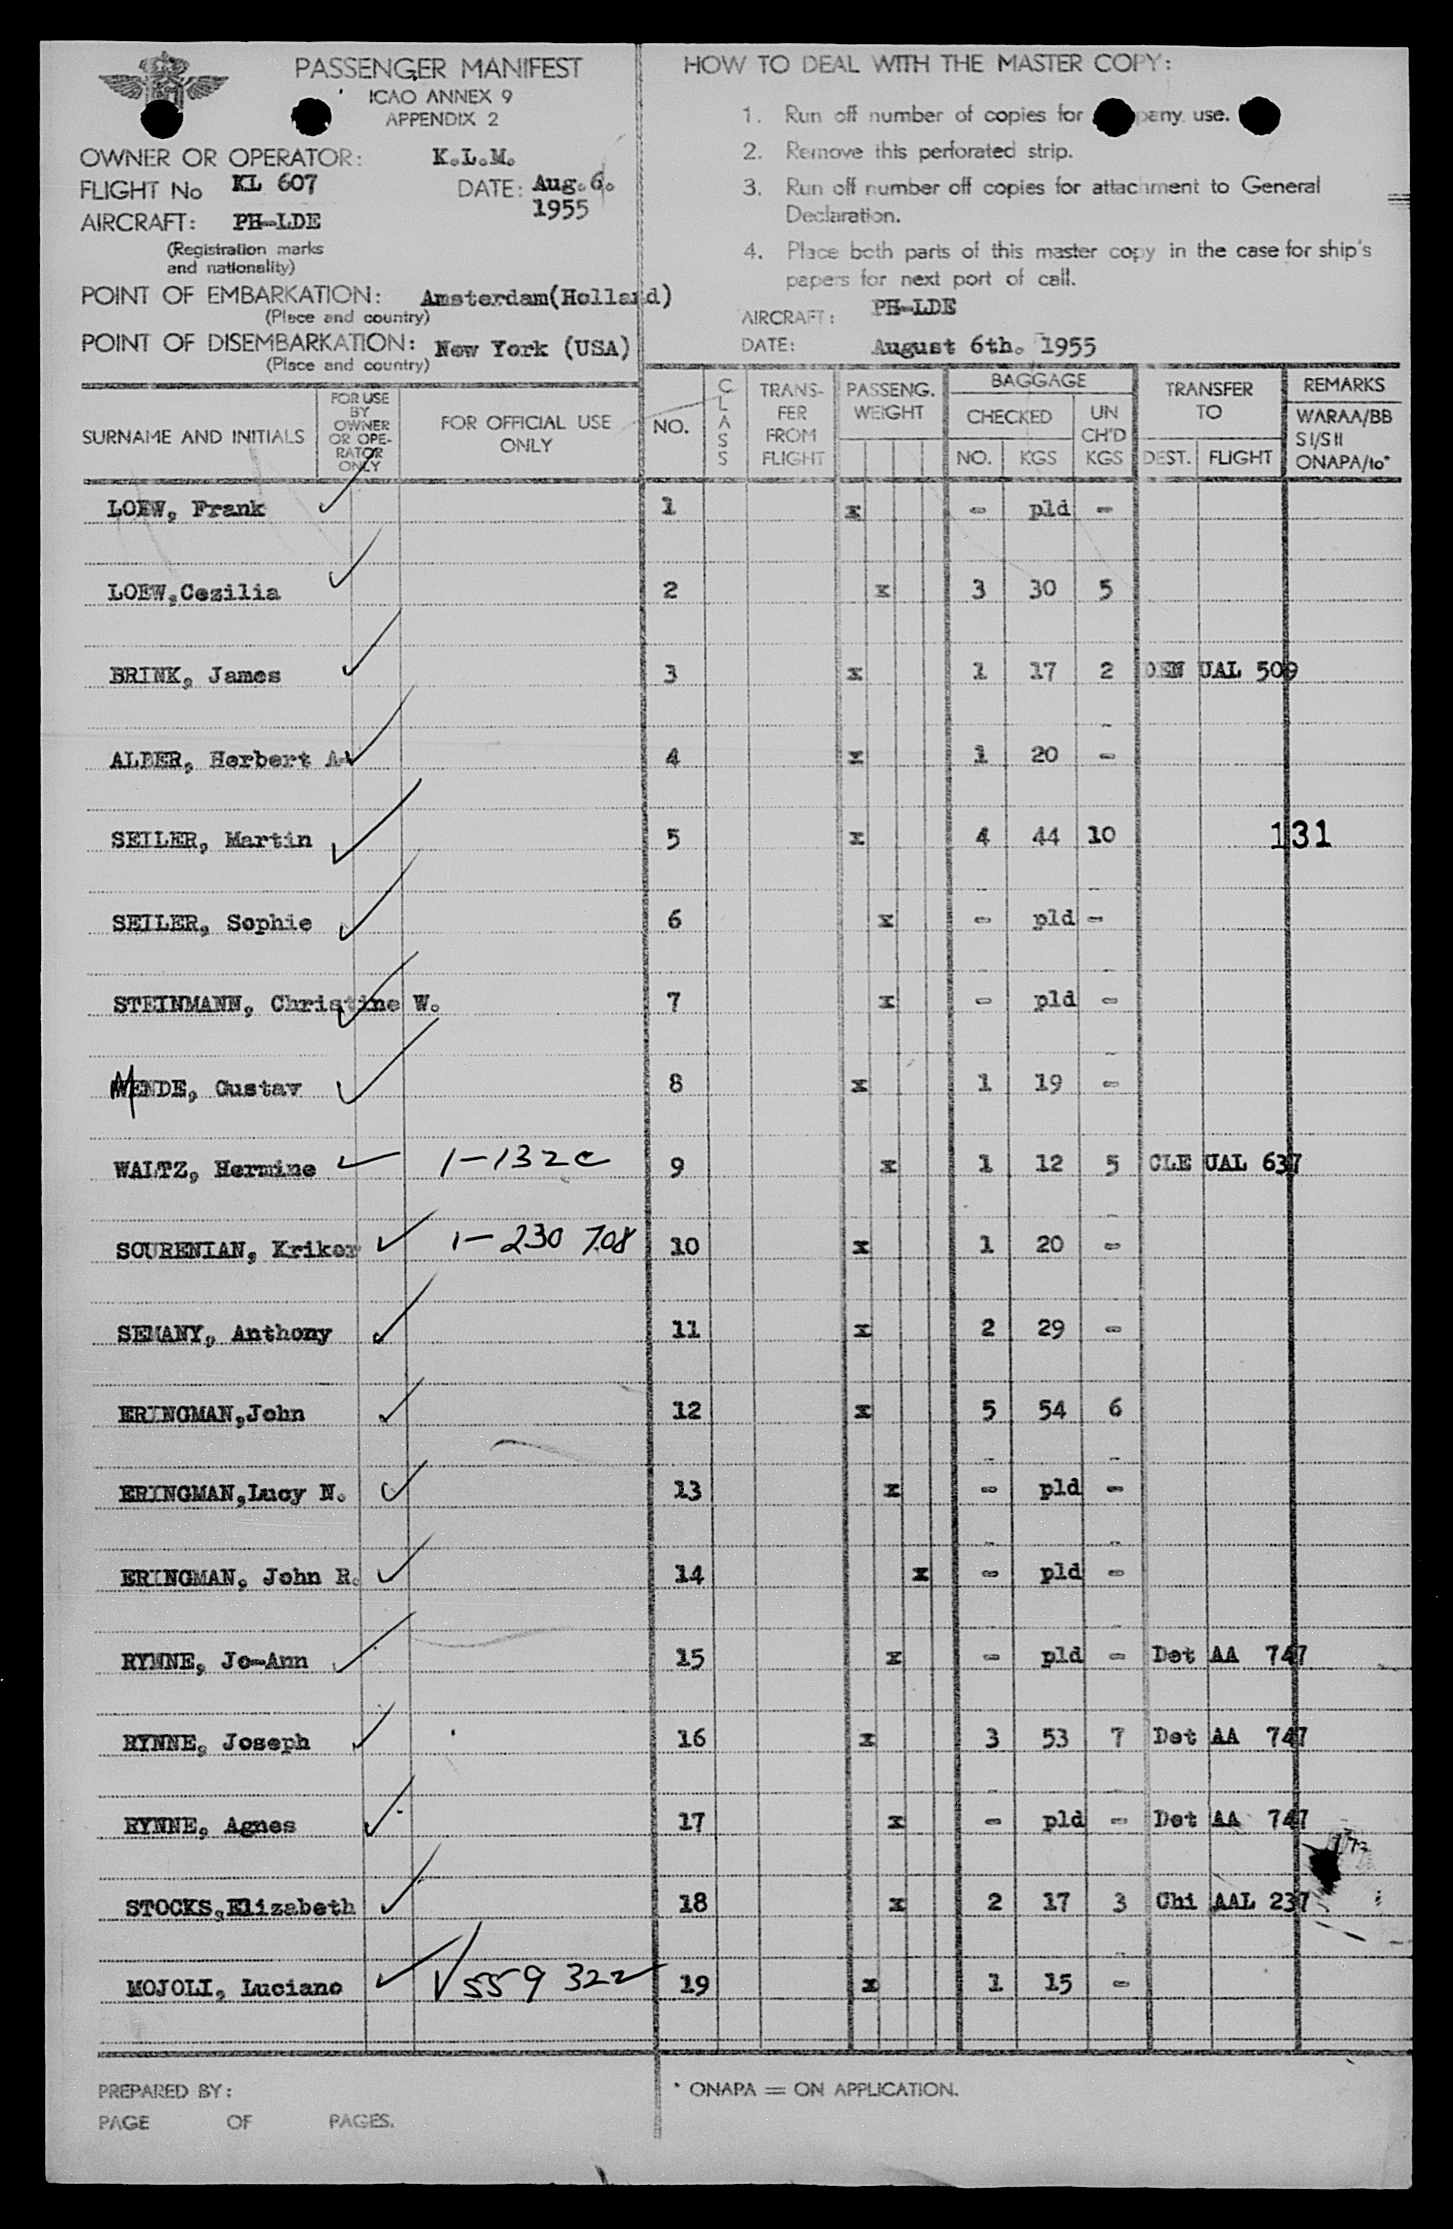 PASSENGER MANIFEST
ICAO ANNEX 9
APPENDIX 2
OWNER OR OPERATOR: K.L.M.
FLIGHT No KL 607 DATE: Aug. 6.
1955
AIRCRAFT: PH-LDE
(Registration marks
and nationality)
POINT OF EMBARKATION: Amsterdam(Holland)
(Place and country)
POINT OF DISEMBARKATION: New York (USA)
(Place and country)
HOW TO DEAL WITH THE MASTER COPY:
1. Run off number of copies for pany use.
2. Remove this perforated strip.
3. Run off number off copies for attachment to General
Declaration.
4. Place both parts of this master copy in the case for ship's
papers for next port of call.
AIRCRAFT: PH-LDE
DATE: August 6th. 1955
SURNAME AND INITIALS
FOR USE
BY
OWNER
OR OPE-
RATOR
ONLY
FOR OFFICIAL USE
ONLY
NO.
CLASS
TRANS-
FER
FROM
FLIGHT
PASSENG.
WEIGHT
BAGGAGE
CHECKED
NO. KGS
UN
CH'D
KGS
TRANSFER
TO
DEST. FLIGHT
REMARKS
WARAA/BB
SI/SII
ONAPA/to*
LOEW, Frank 1 x - pld -
LOEW,Cezilia 2 x 3 30 5
BRINK, James 3 x 1 17 2 DEN UAL 509
ALDER, Herbert A. 4 x 1 20 -
SEILER, Martin 5 x 4 44 10 131
SEILER, Sophie 6 x - pld -
STEINMANN, Christine W. 7 x - pld -
MENDE, Gustav 8 x 1 19 -
WALTZ, Hermine 1-132c 9 x 1 12 5 CLE UAL 637
SOURENIAN, Krikor 1-230 708 10 x 1 20 -
SEMANY, Anthony 11 x 2 29 -
ERINGMAN,John 12 x 5 54 6
ERINGMAN,Lucy N. 13 x - pld -
ERINGMAN, John R. 14 x - pld -
RYNNE, Jo-Ann 15 x - pld - Det AA 747
RYNNE, Joseph 16 x 3 53 7 Det AA 747
RYNNE, Agnes 17 x - pld - Det AA 747
STOCKS,Elizabeth 18 x 2 17 3 Chi AAL 237
MOJOLI, Luciano V 559 322 19 x 1 15 -
PREPARED BY:
PAGE OF PAGES.
* ONAPA = ON APPLICATION.